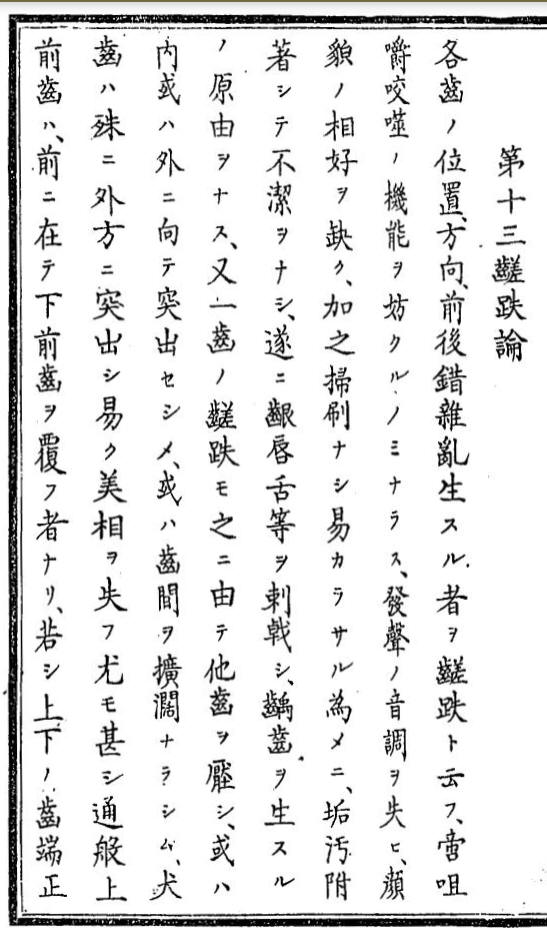 第十三齹跌論
各齒ノ位置、方向、前後錯雜亂生スル者ヲ齹跌ト云フ、啻咀
嚼咬噬ノ機能ヲ妨クルノミナラス、發聲ノ音調ヲ失ヒ、顏
貌ノ相好ヲ缺ク、加之掃刷ナシ易カラサル為メニ、垢汚附
著シテ不潔ヲナシ、遂ニ齦唇舌等ヲ刺戟シ、齲齒ヲ生スル
ノ原由ヲナス、又一齒ノ齹跌モ之ニ由テ他齒ヲ壓シ、或ハ
內或ハ外ニ向テ突出セシメ、或ハ齒間ヲ擴濶ナラシム、犬
齒ハ殊ニ外方ニ突出シ易ク美相ヲ失フ尤モ甚シ通般上
前齒ハ、前ニ在テ下前齒ヲ覆フ者ナリ、若シ上下ノ齒端正